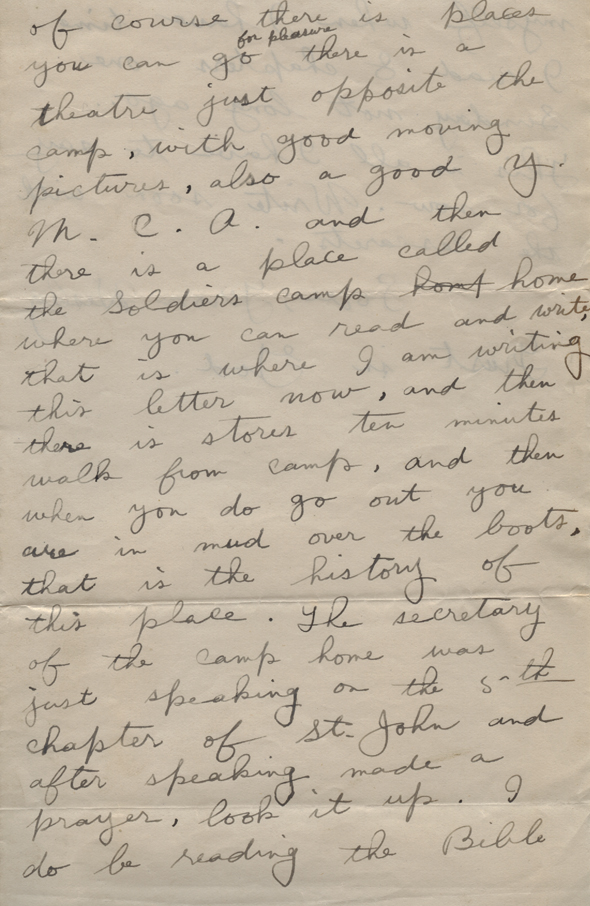 of course there is places
for pleasure
you can go there is a
theatre just opposite the
camp, with good moving
pictures, also a good Y.
M. C. A. and then
there is a place called
the Soldiers camp home
where you can read and write,
that is where I am writing
this letter now, and then
there is stores ten minutes
walk from camp, and then
when you do go out you
are in mud over the boots,
that is the history of
this place. The secretary
of the camp home was
just speaking on the 5th
chapter of St. John and
after speaking made a
prayer, look it up. I
do be reading the Bible